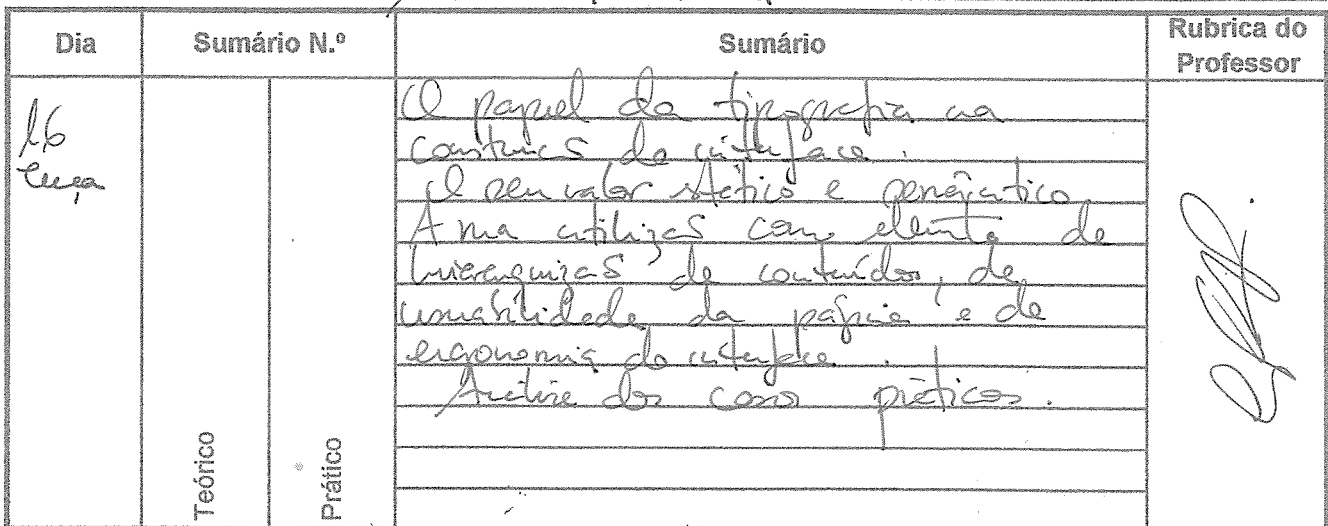 Dia
Sumário N.º
Sumário
Rubrica do
Professor
16
terça
O papel da tipografia na
construção da interface.
O seu valor estético e
A sua utilização como elemento de
hierarquização de conteúdos, de
usabilidade da página e de
ergonomia do interface.
Análise dos casos práticos.
Teórico
Prático